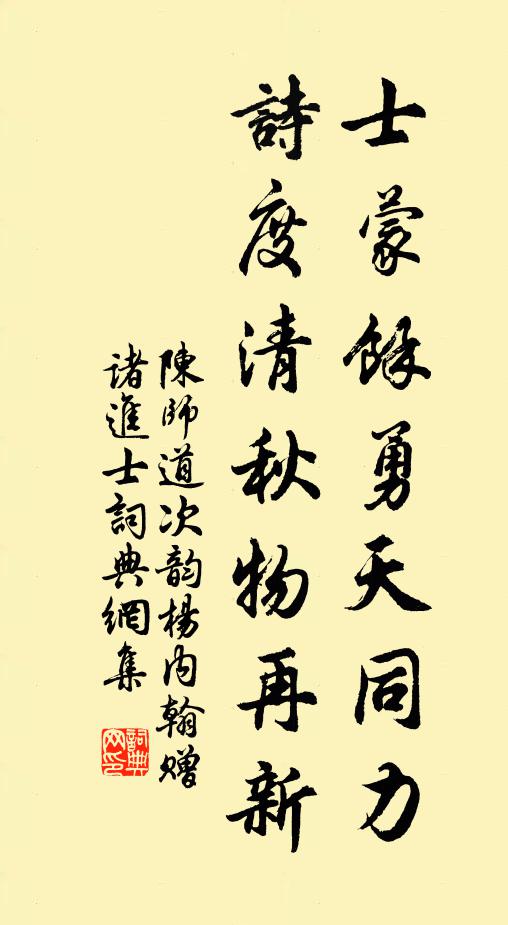 士蒙餘勇天同力
詩度清秋物再新
陳師道次韵楊内翰贈
诸進士詞典網集
詞典网印